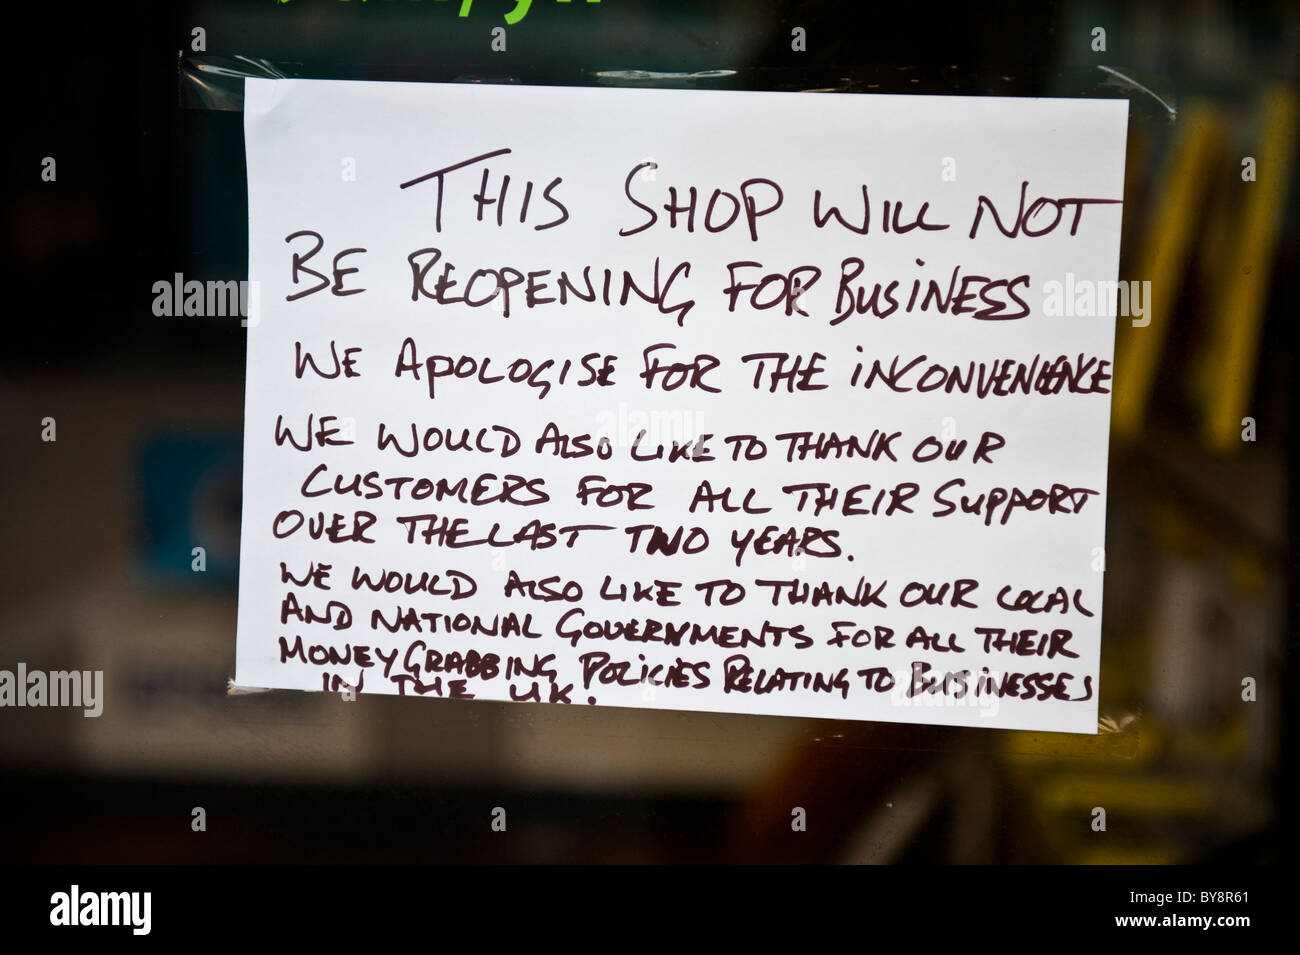 THIS SHOP WILL NOT
BE REOPENING FOR BUSINESS
WE APOLOGISE FOR THE INCONVENIENCE
WE WOULD ALSO LIKE TO THANK OUR
CUSTOMERS FOR ALL THEIR SUPPORT
OVER THE LAST TWO YEARS.
WE WOULD ALSO LIKE TO THANK OUR LOCAL
AND NATIONAL GOVERNMENTS FOR ALL THEIR
MONEY GRABBING POLICIES RELATING TO BUSINESSES
IN THE UK.
alamy
Image ID: BY8R61
www.alamy.com